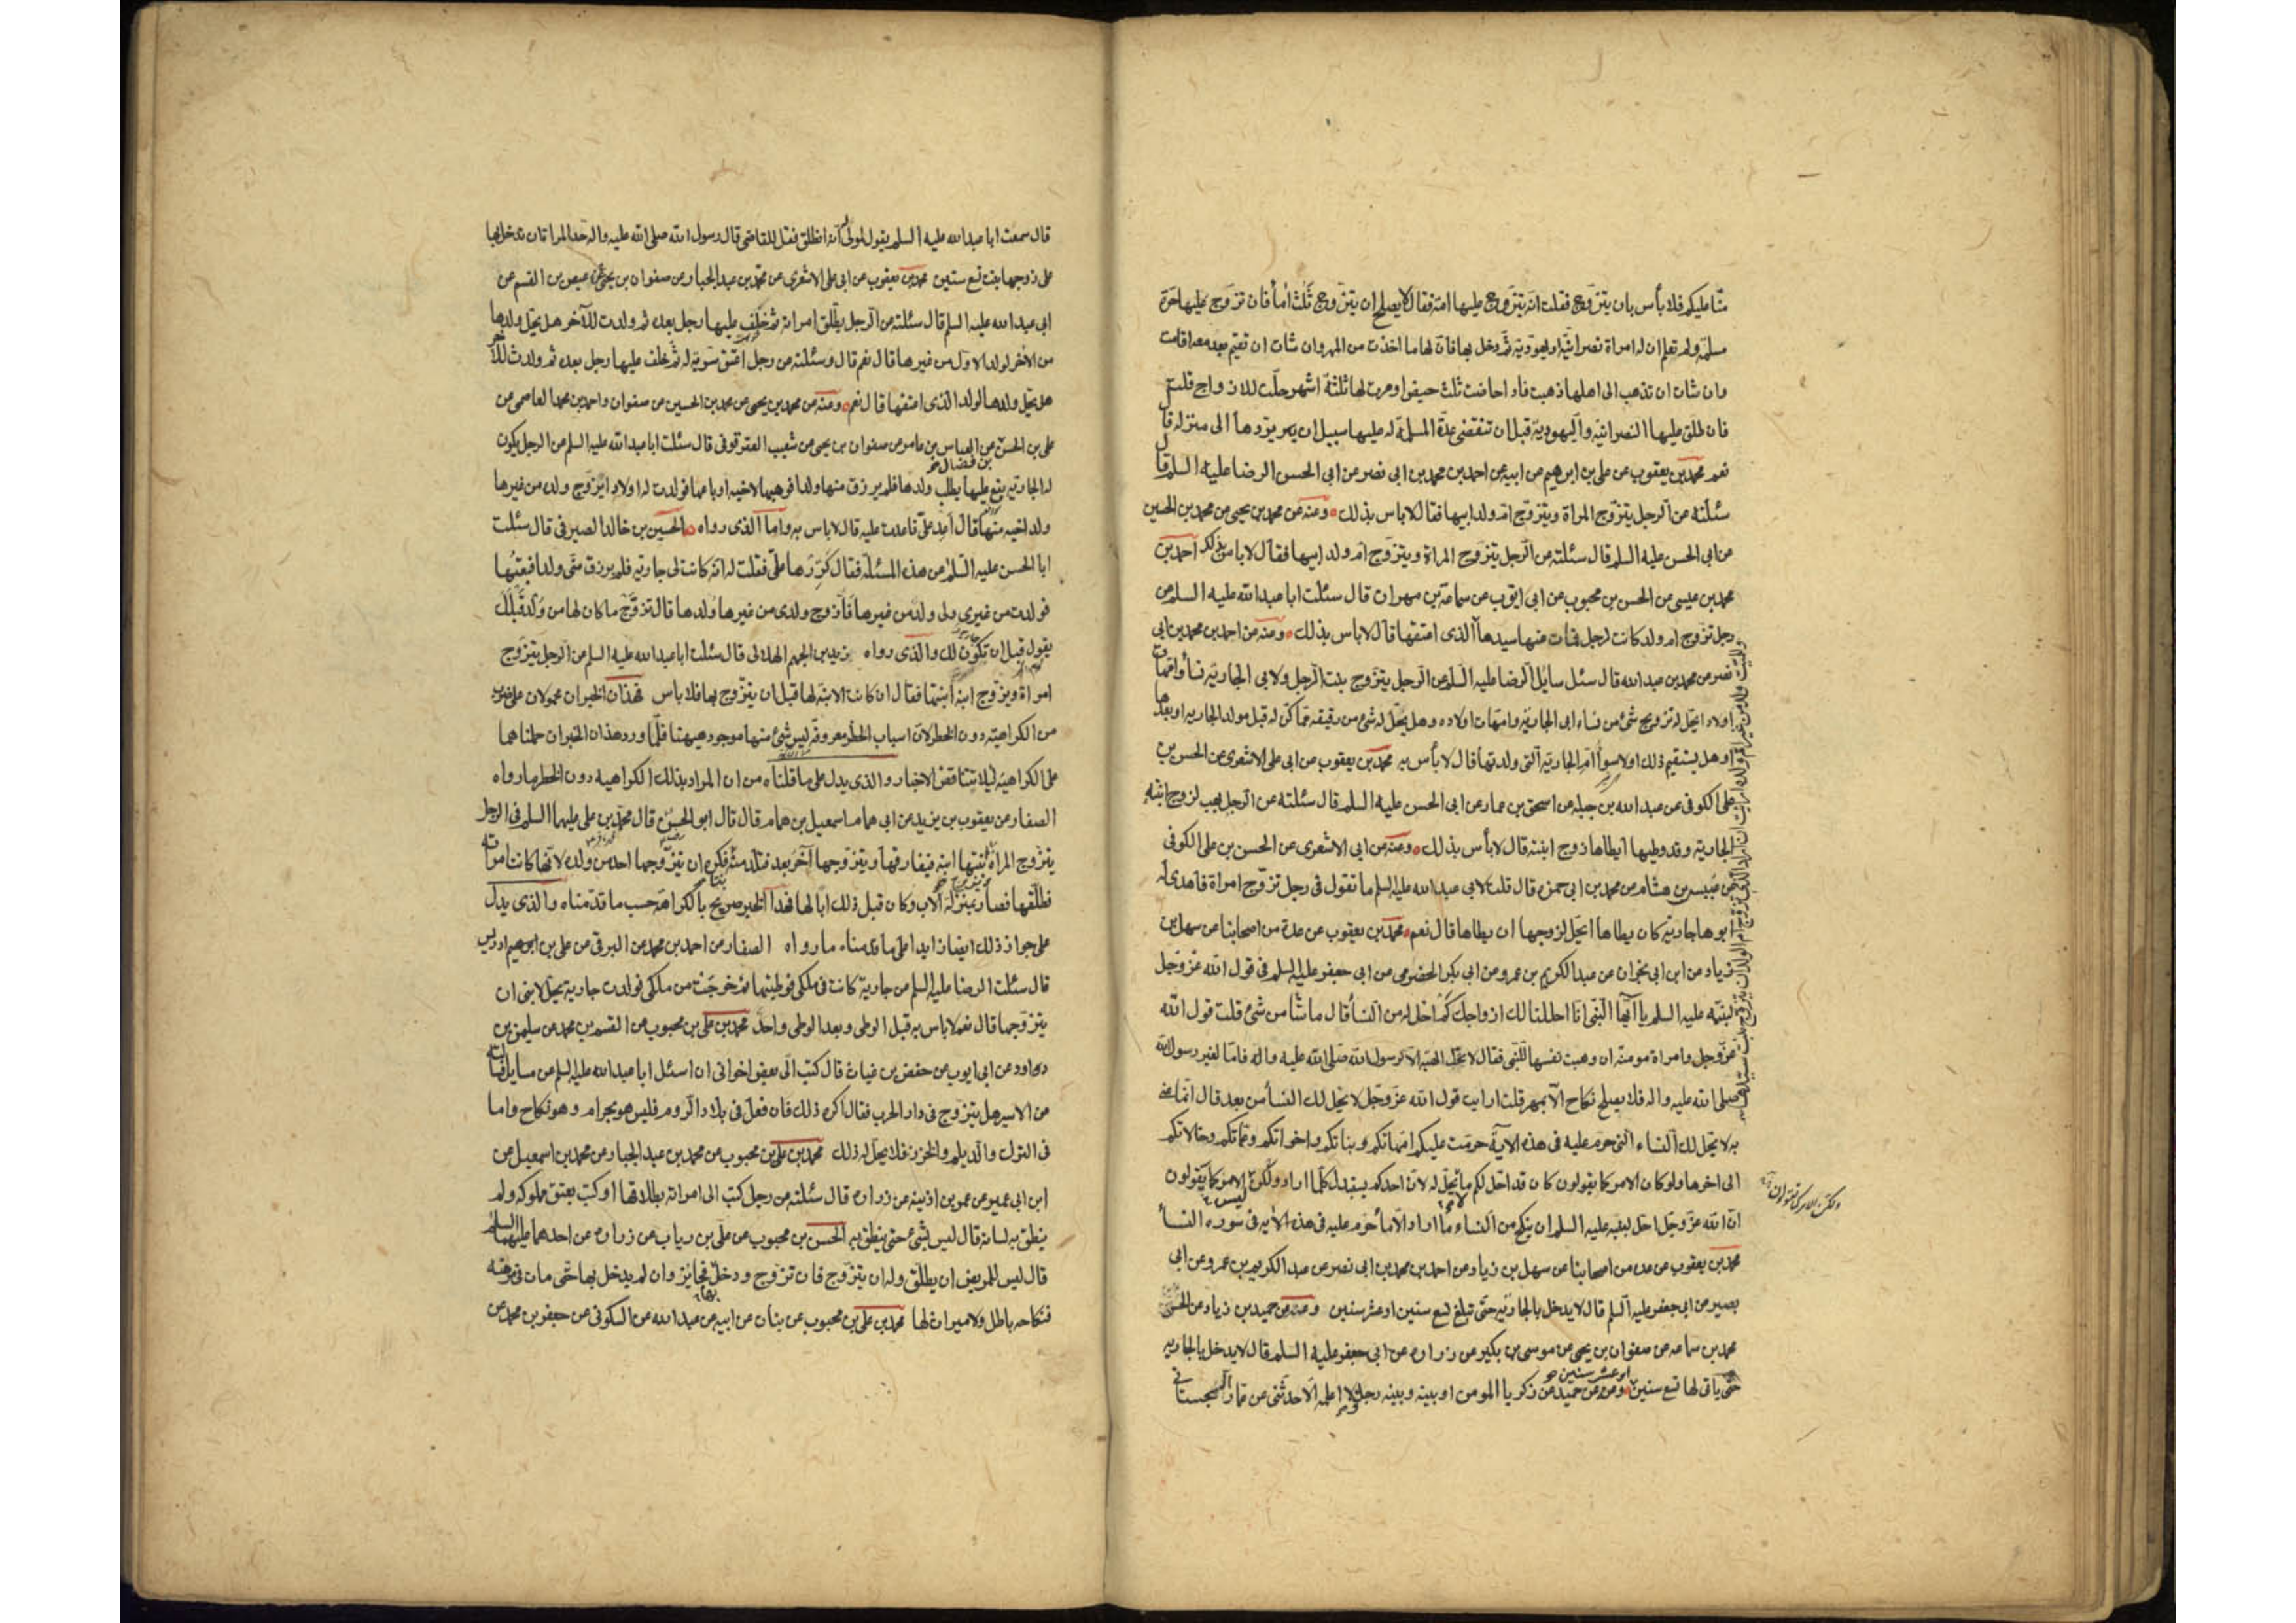 منا عليكم فلا بأس بان يتزوج فقلت انه يتزوج عليها امة فقال لا يصلح ان يتزوج ثلث اماء فان تزوج عليها حرة
مسلمة ولم تعلم ان له امراة نصرانية او يهودية ثم دخل بها فان لها ما اخذت من المهر وان شات ان تقيم بعد معه اقامت
وان شات ان تذهب الى اهلها ذهبت فاذا حاضت ثلث حيض او مرت لها ثلثة اشهر حلت للازواج قلت
فان طلق عليها النصرانية واليهودية قبل ان تنقضي عدة المسلمة له عليها سبيل ان يردها الى منزله قال
نعم محمد بن يعقوب عن على بن ابرهيم عن ابيه عن احمد بن محمد بن ابى نصر عن ابى الحسن الرضا عليه السلم قال
سئلته عن الرجل يتزوج المراة ويتزوج ام ولد ابيها فقال لا باس بذلك ومنه عن محمد بن يحيى عن محمد بن الحسين
عن ابى الحسن عليه السلم قال سئلته عن الرجل يتزوج المراة ويتزوج ام ولد ابيها فقال لا باس بذلك احمد بن
محمد بن عيسى عن الحسن بن محبوب عن ابى ايوب عن سماعة بن مهران قال سئلت ابا عبد الله عليه السلم عن
رجل تزوج ام ولد كانت لرجل فمات عنها سيدها الذى اعتقها قال لا باس بذلك ومنه عن احمد بن محمد بن ابى
نصر عن محمد بن عبد الله قال سئل سايل الرضا عليه السلم عن الرجل يتزوج بنت الرجل ولابى الجارية نساء وامهات
اولاد ايحل له تزويج شئ من نساء ابى الجارية وامهات اولاده وهل يحل له شئ من رقيقه مما كن له قبل مولد الجارية او بعدها
او هل يستقيم ذلك او لا سوا ام الجارية التى ولدتها قال لا بأس به محمد بن يعقوب عن ابى على الاشعرى عن الحسن بن
على الكوفى عن عبد الله بن جبلة عن اسحق بن عمار عن ابى الحسن عليه السلم قال سئلته عن الرجل يهب لزوج ابنته
الجارية وقد وطيها ايطاها زوج ابنته قال لا بأس بذلك ومنه عن ابى الاشعرى عن الحسن بن على الكوفى
عن عبيس بن هشام عن محمد بن ابى حمزه قال قلت لابى عبد الله عليه السلم ما تقول فى رجل تزوج امراة فاهدى له
ابوها جارية كان يطاها ايحل لزوجها ان يطاها قال نعم محمد بن يعقوب عن عدة من اصحابنا عن سهل بن
زياد عن ابن ابى نجران عن عبد الكريم بن عمرو عن ابى بكر الحضرمى عن ابى جعفر عليه السلم فى قول الله عز وجل
لنبيه عليه السلم يا ايها النبى انا احللنا لك ازواجك كم احل له من النساء قال ما شاء من شئ قلت قول الله
عز وجل وامراة مومنة ان وهبت نفسها للنبى فقال لا تحل الهبة الا لرسول الله صلى الله عليه واله فاما لغير رسول الله
صلى الله عليه واله فلا يصلح نكاح الا بمهر قلت ارايت قول الله عز وجل لا يحل لك النساء من بعد قال انما عنى
به لا يحل لك النساء التى حرم عليه فى هذه الاية حرمت عليكم امهاتكم وبناتكم واخواتكم وعماتكم وخالاتكم
الى اخرها ولو كان الامر كما يقولون كان قد احل لكم ما لم يحل له لان احدكم يستبدل كلما اراد ولكن ليس الامر كما يقولون
ولكن الامر كما يقولون
ان الله عز وجل احل لنبيه عليه السلم ان ينكح من النساء ما اراد الا ما حرم عليه فى هذه الاية فى سورة النساء
محمد بن يعقوب عن عدة من اصحابنا عن سهل بن زياد عن احمد بن محمد بن ابى نصر عن عبد الكريم بن عمرو عن ابى
بصير عن ابى جعفر عليه السلم قال لا يدخل بالجارية حتى تبلغ تسع سنين او عشر سنين ومنه عن حميد بن زياد عن الحسن
محمد بن سماعه عن صفوان بن يحيى عن موسى بن بكير عن زراره عن ابى جعفر عليه السلم قال لا يدخل بالجارية
حتى ياتى لها تسع سنين او عشر سنين ومنه عن حميد عن زكريا المومن او بينه وبينه رجل ولا اعلمه الا حدثنى عن عمار السجستانى
قال سمعت ابا عبد الله عليه السلم يقول لمولى له انطلق فقل للقاضى قال رسول الله صلى الله عليه واله حد المراة ان يدخل بها
على زوجها بنت تسع سنين محمد بن يعقوب عن ابى على الاشعرى عن محمد بن عبد الجبار عن صفوان بن يحيى عن عيص بن القسم عن
ابى عبد الله عليه السلم قال سئلته عن الرجل يطلق امراته ثم خلف عليها رجل بعده ثم ولدت للآخر هل يحل ولدها
من الاخر لولد الاول من غيرها قال نعم قال وسئلته عن رجل اعتق سرية له ثم خلف عليها رجل بعده ثم ولدت للآخر
هل يحل ولدها لولد الذى اعتقها قال نعم ومنه عن محمد بن يحيى عن محمد بن الحسين عن صفوان واحمد بن محمد العاصمى عن
على بن الحسن بن فضال عن العباس بن عامر عن صفوان بن يحيى عن شعيب العقرقوفى قال سئلت ابا عبد الله عليه السلم عن الرجل يكون
له الجارية يقع عليها يطلب ولدها فلم يرزق منها ولدا فوهبها لاخيه او باعها فولدت له اولادا ايزوج ولده من غيرها
ولد اخيه منها قال اعد على فاعدت عليه قال لا باس به واما الذى رواه الحسين بن خالد الصيرفى قال سئلت
ابا الحسن عليه السلم عن هذه المسئلة فقال كررها على فقلت له انه كانت لى جارية فلم يرزق منى ولدا فبعتها
فولدت من غيرى ولى ولد من غيرها فازوج ولدى من غيرها ولدها قال تزوج ما كان لها من ولد قبلك
يقول قبل ان تكون لك والذى رواه زيد بن الجهم الهلالى قال سئلت ابا عبد الله عليه السلم عن الرجل يتزوج
امراة ويزوج ابنه ابنتها فقال ان كانت الابنة لها قبل ان يتزوج بها فلا باس فهذان الخبران محمولان على ضرب
من الكراهية دون الحظر لان اسباب الحظر معروفة ليس شئ منها موجود هيهنا فلما ورد هذان الخبران حملناهما
على الكراهية ليلا يتناقض الاخبار والذى يدل على ما قلناه من ان المراد بذلك الكراهية دون الحظر ما رواه
الصفار عن يعقوب بن يزيد عن ابى همام اسمعيل بن همام قال قال ابو الحسن قال محمد بن على عليهما السلم فى الرجل
يتزوج المراة ويزوج ابنتها ابنه فيفارقها ويتزوجها آخر بعد فتلد منه فكره ان يتزوجها احد من ولده لانها كانت امراته
فطلقها فصار بمنزلة الاب وكان قبل ذلك ابا لها فهذا الخبر صريح بالكراهة حسب ما قدمناه والذى يدل
على جواز ذلك ايضا زايدا على ما قدمناه ما رواه الصفار عن احمد بن محمد عن البرقى عن على بن ادريس
قال سئلت الرضا عليه السلم عن جارية كانت فى ملكى فوطيتها ثم خرجت من ملكى فولدت جارية يحل لابنى ان
يتزوجها قال نعم لا باس به قبل الوطى وبعد الوطى واحد محمد بن على بن محبوب عن القسم بن محمد عن سليمن بن
داود عن ابى ايوب عن حفص بن غياث قال كتب الى بعض اخوانى ان اسئل ابا عبد الله عليه السلم عن مسايل فسالته
عن الاسير هل يتزوج فى دار الحرب فقال اكره ذلك فان فعل فى بلاد الروم فليس هو بحرام وهو نكاح واما
فى الترك والديلم والخزر فلا يحل له ذلك محمد بن على بن محبوب عن محمد بن عبد الجبار عن محمد بن اسمعيل عن
ابن ابى عمير عن عمر بن اذينه عن زراره قال سئلته عن رجل كتب الى امراته بطلاقها او كتب بعتق مملوكه ولم
ينطق به لسانه قال ليس بشئ حتى ينطق به الحسن بن محبوب عن على بن رياب عن زراره عن احدهما عليهما السلم
قال ليس للمريض ان يطلق وله ان يتزوج فان تزوج ودخل بها فجايز وان لم يدخل بها حتى مات فى مرضه
فنكاحه باطل ولا ميراث لها محمد بن على بن محبوب عن بنان عن ابيه عن عبد الله عن السكونى عن جعفر بن محمد عن